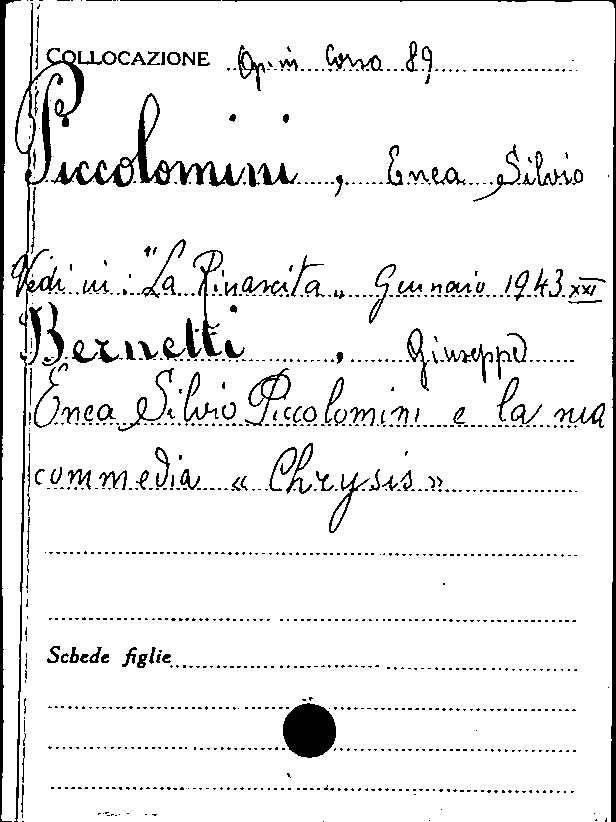 COLLOCAZIONE Op. in Corso 89
Piccolomini, Enea Silvio
Vedi in: "La Rinascita„ Gennaio 1943 XXI
Bernetti, Giuseppe
Enea Silvio Piccolomini e la sua
commedia « Chrysis »
Schede figlie